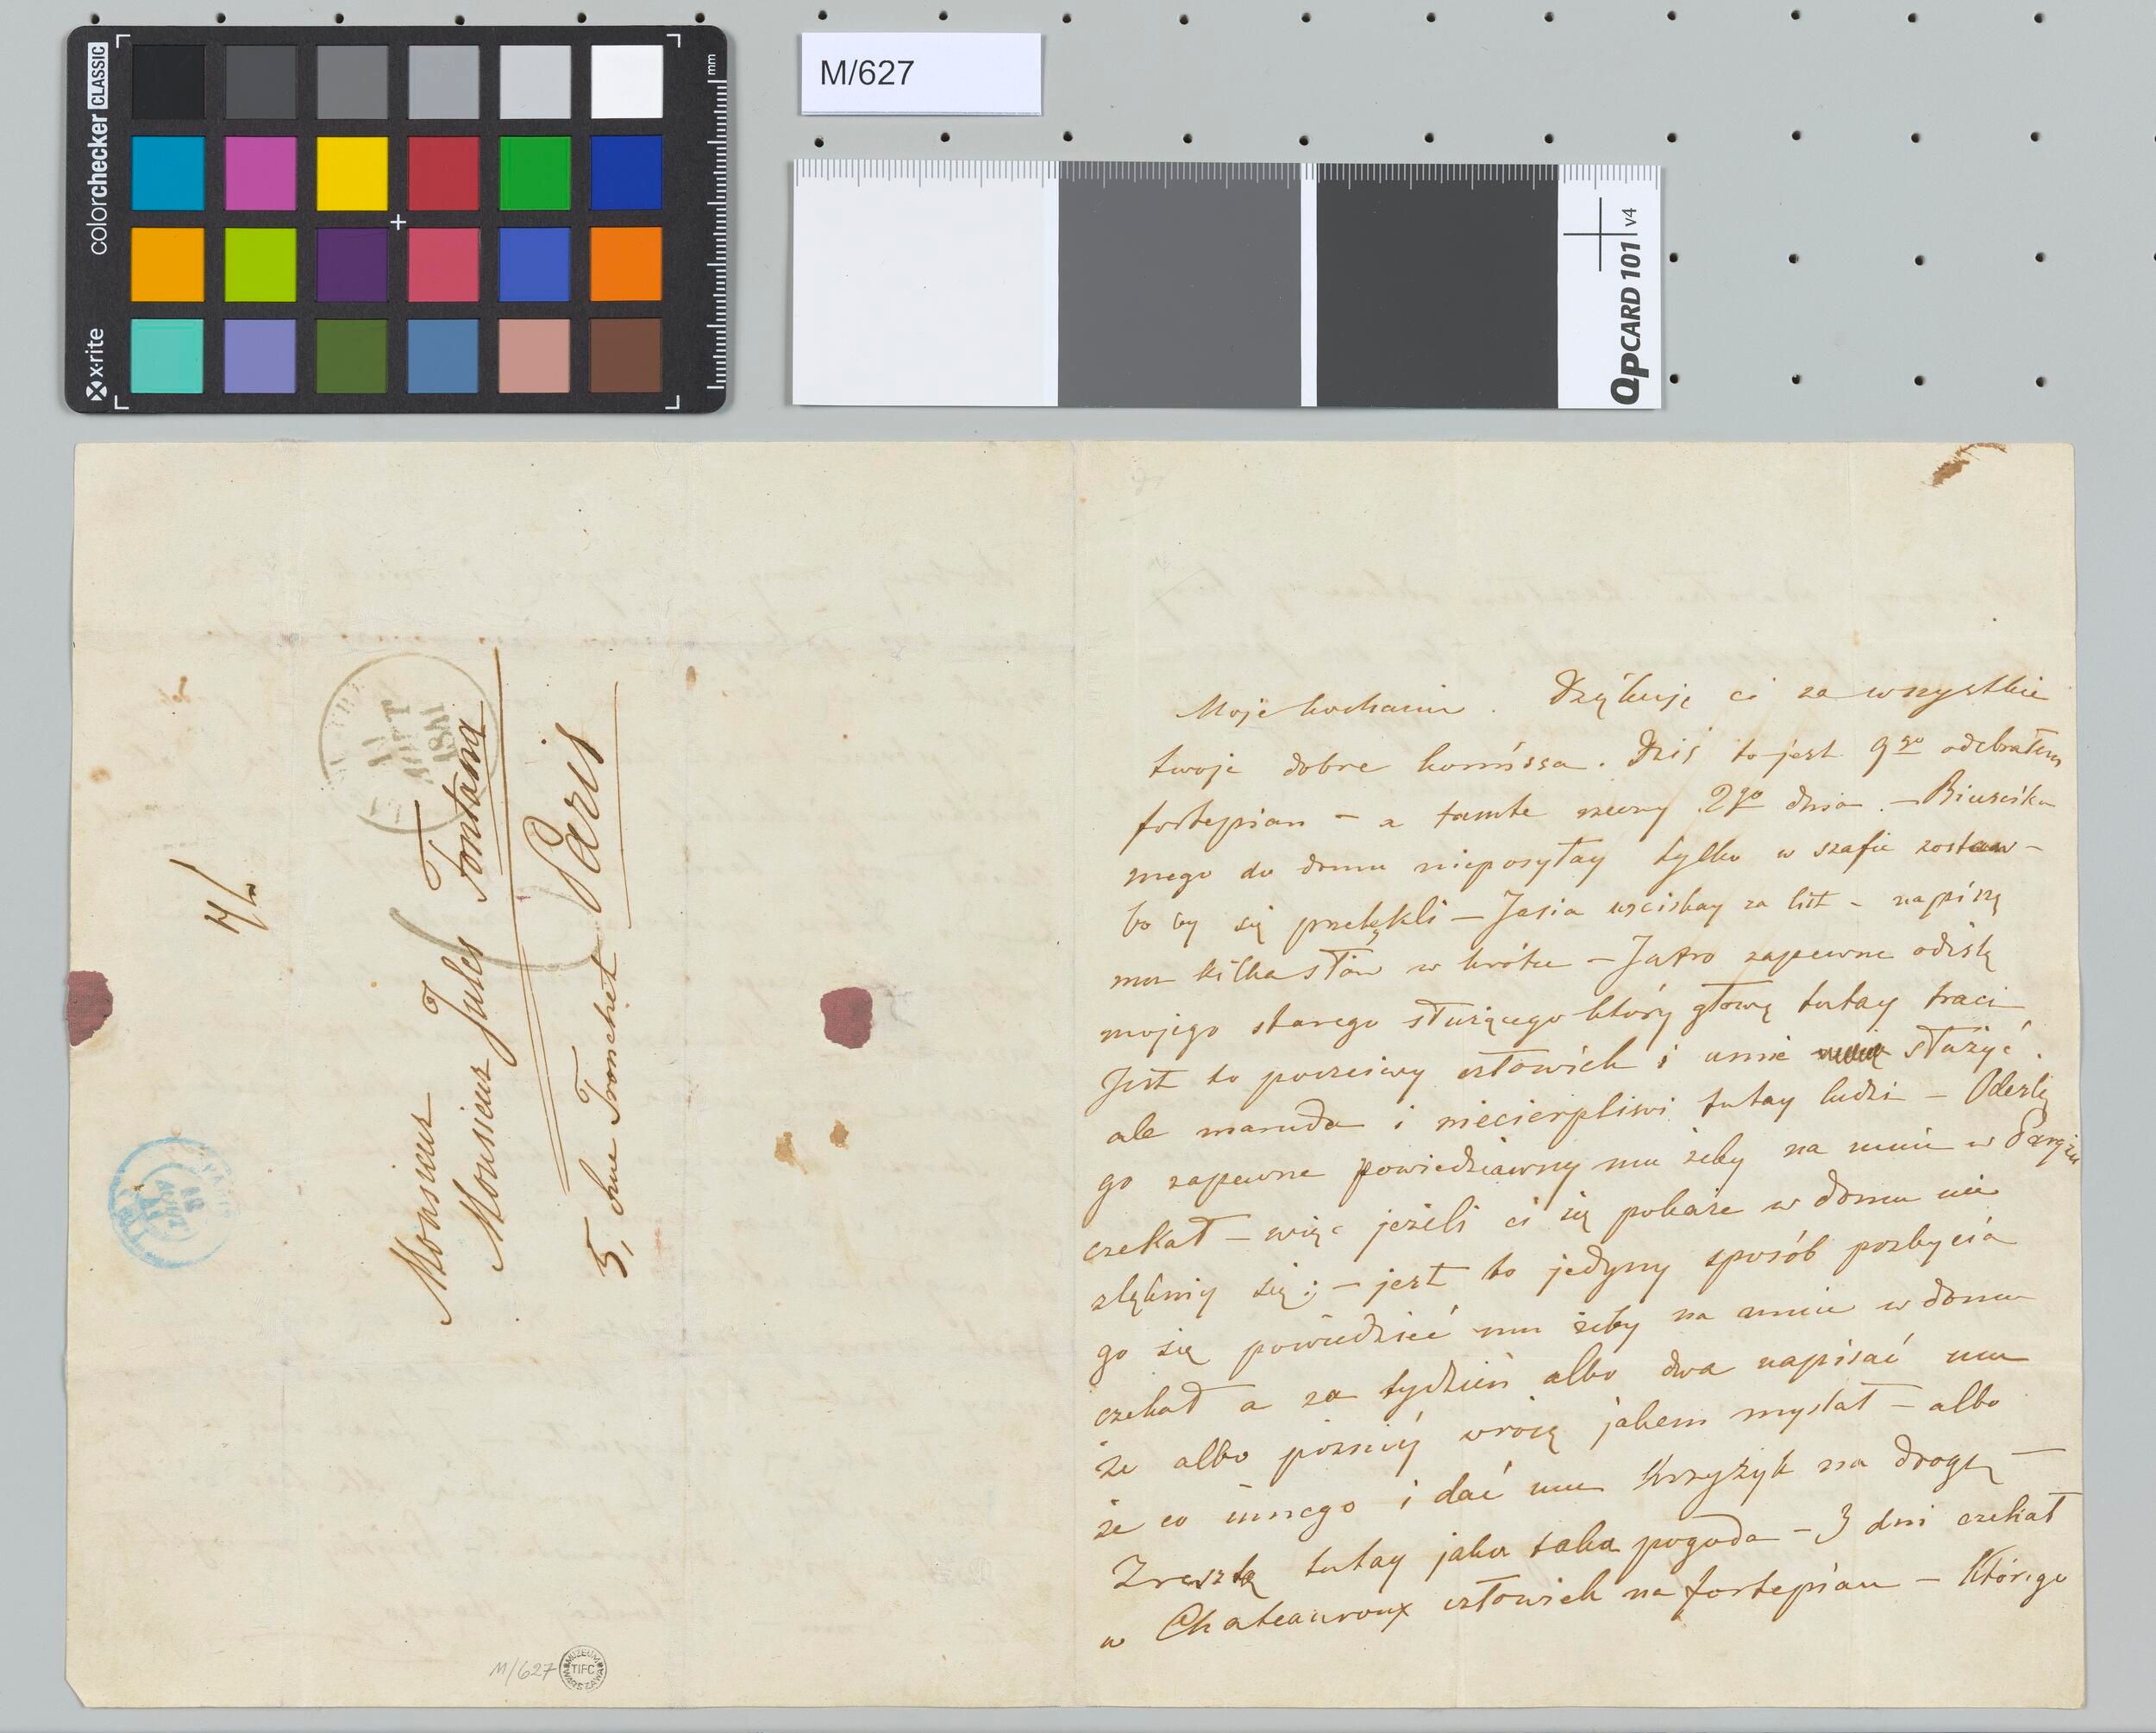 colorchecker CLASSIC
x-rite
mm
M/627
QPCARD 101 v4
Monsieur
Monsieur Jules Fontana
Paris
5, rue Tronchet
11
AOUT
1841
M/627
MUZEUM
TIFC
WARSZAWA
Moje kochanie. Dziękuję ci za wszystkie
twoje dobre komissa. Dziś to jest 9go odebrałem
fortepian – a tamte rzeczy 2go dnia. – Biuściku
mego do domu nieposyłay tylko w szafie zostaw –
bo by się przelękli – Jasia uściskay za list – napiszę
mu kilka słów w krótce – Jutro zapewne odeślę
mojego starego służącego który głowę tutay traci
Jest to poczciwy człowiek i umie służyć.
ale maruda i niecierpliwi tutay ludzi – Odeślę
go zapewne powiedziawszy mu żeby na mnie w Paryżu
czekał – więc jeżeli ci się pokaże w domu nie
zlęknij się; – jest to jedyny sposób pozbycia
go się powiedzieć mu żeby na mnie w domu
czekał a za tydzień albo dwa napisać mu
że albo pozniéj wrócę jakem myślał – albo
że co innego i dać mu krzyżyk na drogę –
Zresztą tutay jaka taka pogoda – 3 dni czekał
w Chateauroux człowiek na fortepian – którego